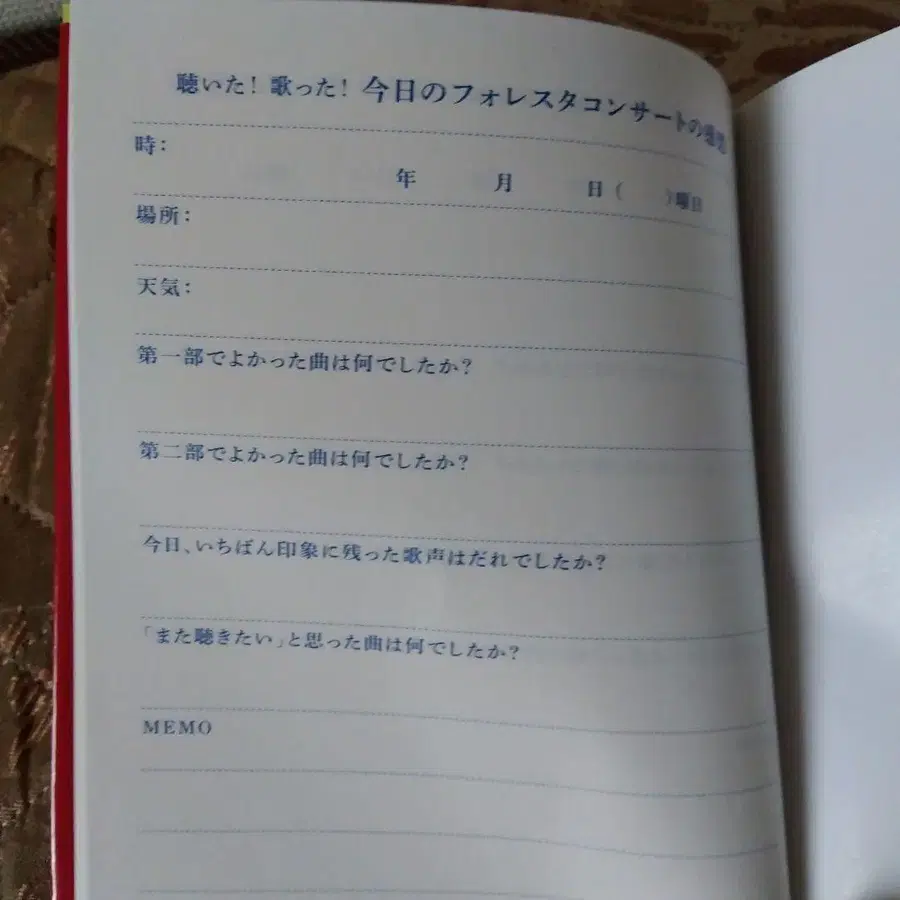 聴いた! 歌った! 今日のフォレスタコンサートの感想
時:
年 月 日( )曜日
場所:
天気:
第一部でよかった曲は何でしたか?
第二部でよかった曲は何でしたか?
今日、いちばん印象に残った歌声はだれでしたか?
「また聴きたい」と思った曲は何でしたか?
MEMO